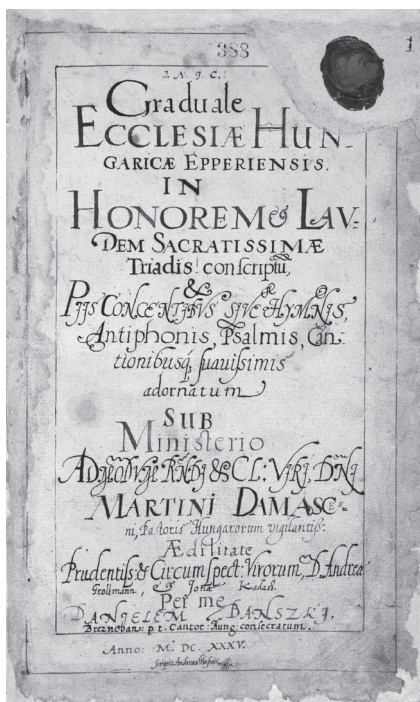 388
1
I. N. J. C.!
Graduale
ECCLESIÆ HUN-
GARICÆ EPPERIENSIS.
IN
HONOREM & LAV-
DEM SACRATISSIMÆ
Triadis! conscriptũ,
&
PIJS CONCENTIBVS SIVE HYMNIS,
Antiphonis, Psalmis, Can-
tionibusq, suauissimis
adornatum
SUB
Ministerio
ADMODVM RNDJ & CL: VIRJ. DNJ
MARTINI DAMASCE-
ni, Pastoris Hungarorum vigilantiss:
Ædilitate
Prudentiss: & Circumspect: Virorum, D. Andreæ
Grollmann, & Jonæ Kadas.
Per me
DANIELEM BANSZKJ.
Breznoban: p. t. Cantor: Hung: consecratum.
Anno: M. DC. XXXV.
scripsit Andreas